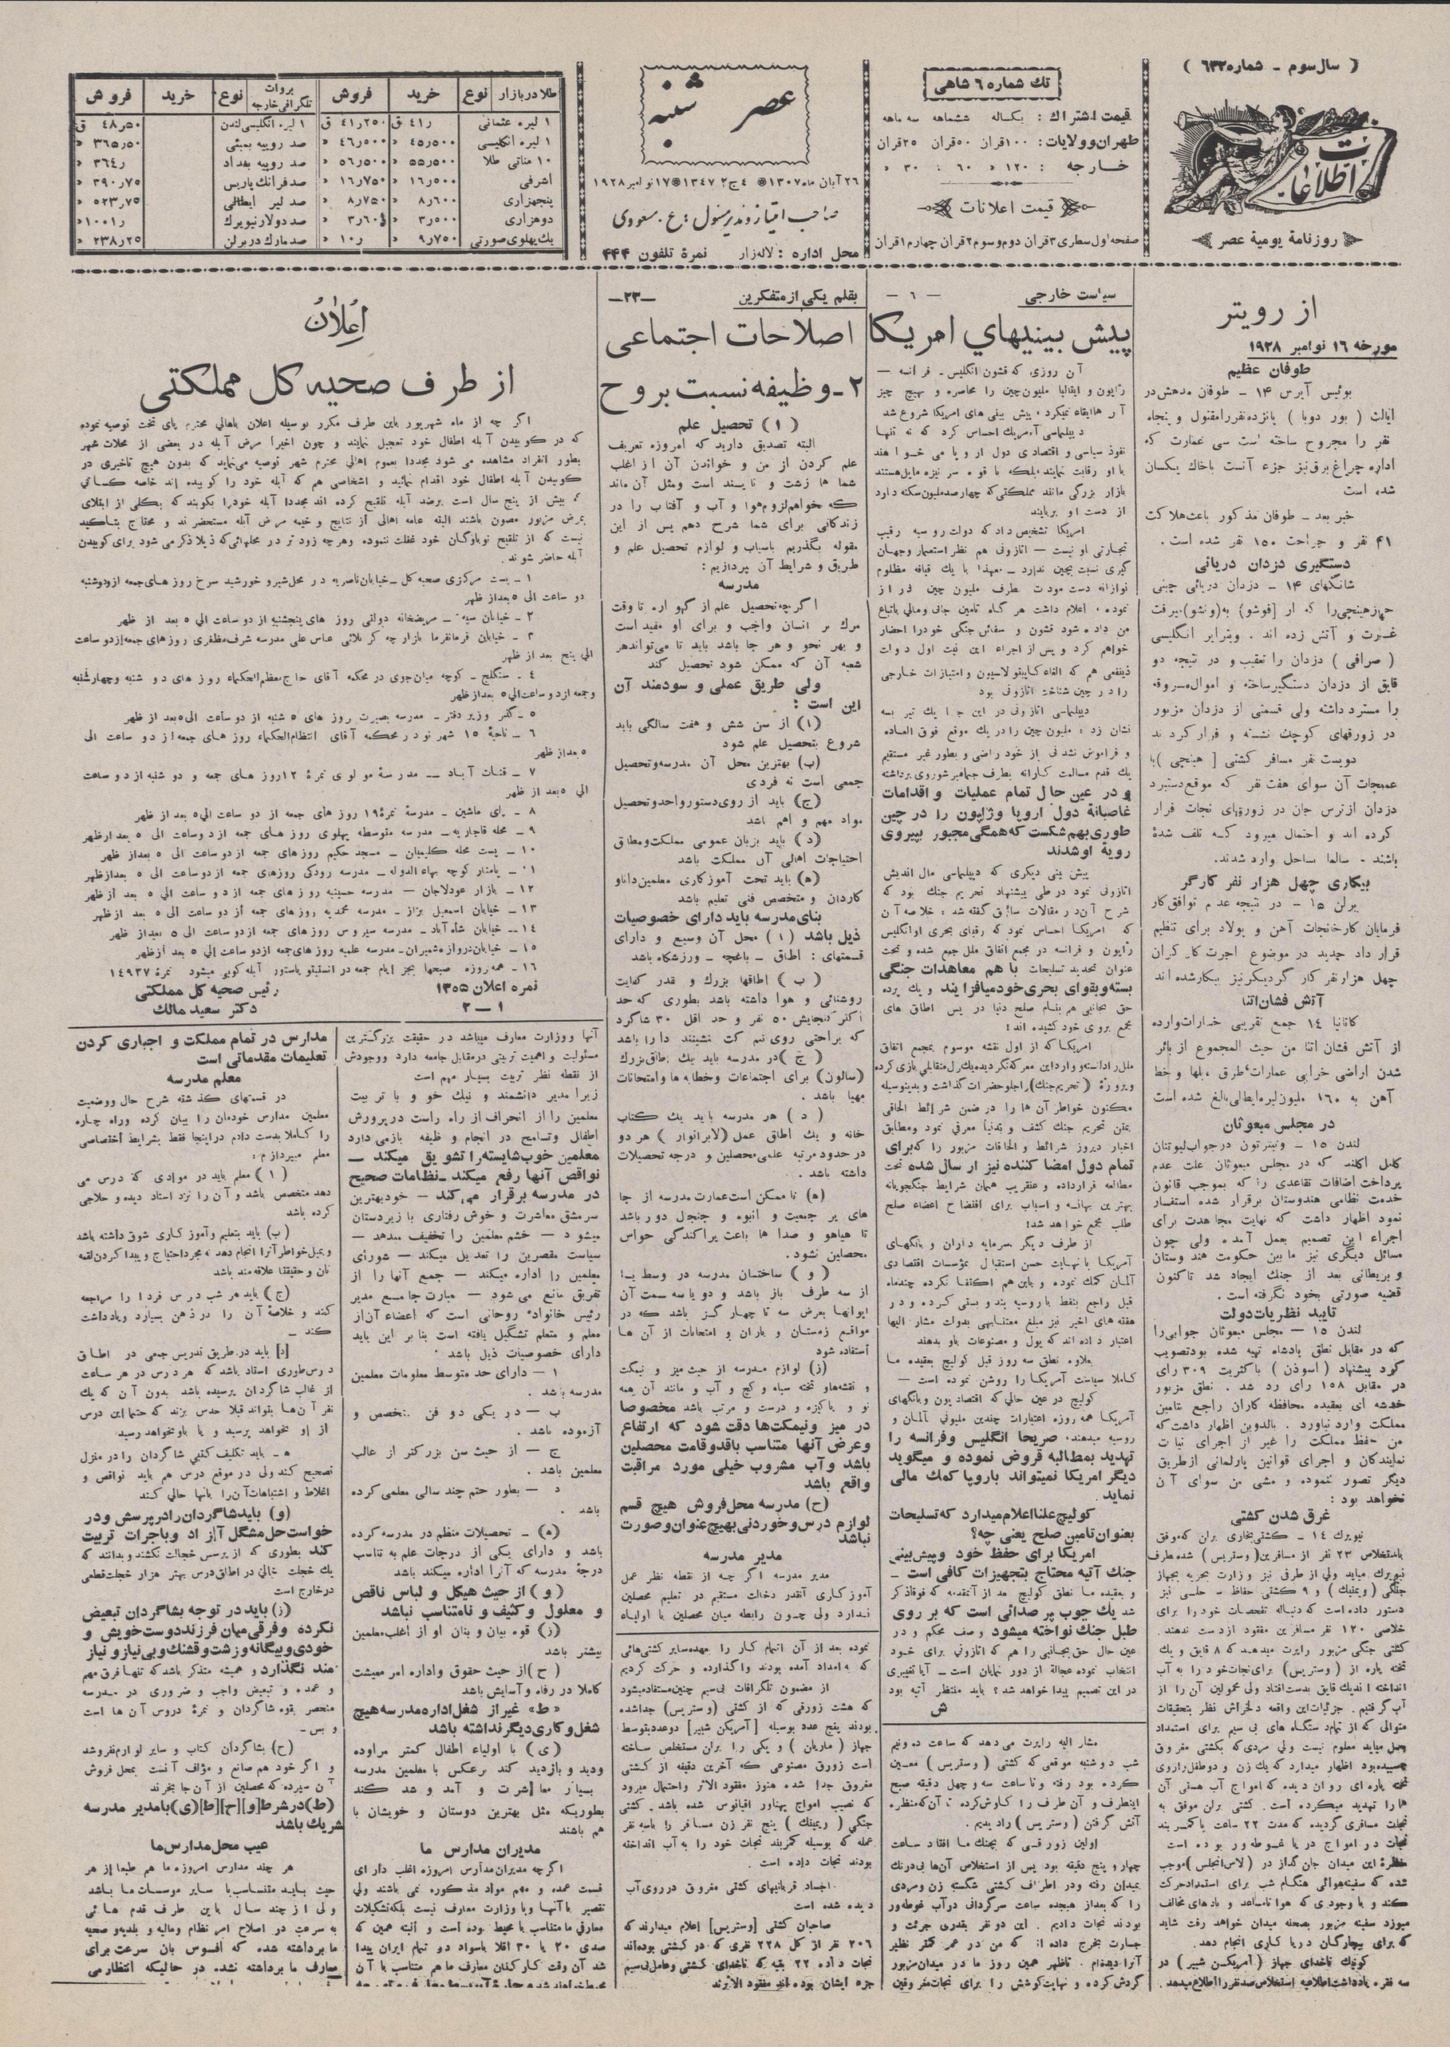 ( سال سوم - شماره ۶۳۲ )
اطلاعات
روزنامه یومیه عصر
تك شماره ۶ شاهی
قیمت اشتراك: یکساله ششماهه سه ماهه
طهران وولایات: ۱۰۰قران ۵۰ قران ۲۵قران
خارجه : ۱۲۰ » ۶۰ : ۳۰ »
قیمت اعلانات
صفحه اول سطری ۳قران دوم و سوم ۲قران چهارم ۱قران
عصر شنبه
۲۶ آبان ماه ۱۳۰۷ ٤ ج ۲ ۱۳٤۷ ۱۷ نوامبر ۱۹۲۸
صاحب امتیاز ومدیر مسئول : ع . مسعودی
محل اداره : لاله زار نمرۀ تلفون ۴۴۴
طلا در بازار نوع خرید فروش
۱ لیره عثمانی ۴۱ر ق ۴۱ر۲۵۰ ق
۱ لیره انگلیسی ۴۵ر۵۰۰ » ۴۶ر۵۰۰ »
۱۰ مناتی طلا ۵۵ر۵۰۰ » ۵۶ر۵۰۰ »
اشرفی ۱۶ر۵۰۰ » ۱۶ر۷۵۰ »
پنجهزاری ۸ر۶۰۰ » ۸ر۷۵۰ »
دوهزاری ۳ر۵۰۰ »
یك پهلوی صورتی ۹ر۷۵۰ » ۱۰ر »
بروات تلگرافی خارجه نوع خرید فروش
۱ لیره انگلیسی لندن ۴۸ر۵۰ ق
صد روپیه بمبئی ۳۶۵ر۵۰ »
صد روپیه بغداد ۳۶۴ر »
صد فرانك پاریس ۳۹ر۷۵ »
صد لیر ایطالی ۵۲ر۷۵ »
صد دولار نیویرك ۱۰۰۱ر »
صد مارك در برلن ۲۳۸ر۲۵ »
از رویتر
مورخه ۱۶ نوامبر ۱۹۲۸
طوفان عظیم
بوئنس آیرس ۱۴ - طوفان مدهش در
ایالت ( پور دوبا ) پانزده نفر را مقتول و پنجاه
نفر را مجروح ساخته است سی عمارت که
اداره چراغ برق نیز جزء آنست باخاك یکسان
شده است
خبر بعد - طوفان مذکور باعث هلاکت
۴۱ نفر و جراحت ۱۵۰ نفر شده است .
دستگیری دزدان دریائی
شانگهای ۱۴ - دزدان دریائی چینی
غارت و آتش زده اند .
( صرافی ) دزدان را تعقیب و در نتیجه دو
قایق از دزدان دستگیر ساخته و اموال مسروقه
را مسترد داشته ولی قسمتی از دزدان مزبور
در زورقهای کوچك نشسته و فرار کردند
دویست نفر مسافر کشتی [ هینچی ] با
عمیجات آن سوای هفت نفر که موقع دستبرد
دزدان از ترس جان در زورقهای نجات فرار
کرده اند و احتمال میرود که تلف شدۀ
باشند - سالما بساحل وارد شدند.
بیکاری چهل هزار نفر کارگر
برلن ۱۵ - در نتیجه عدم توافق کار
فرمایان کارخانجات آهن و پولاد برای تنظیم
قرار داد جدید در موضوع اجرت کار گران
چهل هزار نفر کار گر دیگر نیز بیکار شده اند
آتش فشان اتنا
کاتانیا ۱۴ جمع تقریبی خسارات وارده
از آتش فشان اتنا من حیث المجموع از بائر
شدن اراضی خرابی عمارات طرق ، پلها و خط
آهن به ۱۶۰ ملیون لیره ایطالی بالغ شده است
در مجلس مبعوثان
لندن ۱۵ - وینترتون در جواب لیوتنان
پرداخت اضافات تقاعدی را که بموجب قانون
خدمت نظامی هندوستان برقرار شده استفسار
نمود اظهار داشت که نهایت مجاهدت برای
اجراء این تصمیم بعمل آمده ولی چون
مسائل دیگری نیز ما بین حکومت هندوستان
و بریطانی بعد از جنك ایجاد شد تاکنون
قضیه صورتی بخود نگرفته است .
تأیید نظریات دولت
لندن ۱۵ — مجلس مبعوثان جوابی را
که در مقابل نطق پادشاه تهیه شده بود تصویب
کرد پیشنهاد ( اسودن ) باکثریت ۳۰۹ رأی
در مقابل ۱۵۸ رأی رد شد . نطق مزبور
خدشه ای بعقیده محافظه کاران راجع بتامین
مملکت وارد نیاورد . بالدوین اظهار داشت که
من حفظ مملکت را غیر از اجرای نیات
نمایندگان و اجرای قوانین پارلمانی از طریق
دیگر تصور ننموده و مشی من سوای آن
نخواهد بود :
غرق شدن کشتی
نیویرك ۱۴ - کشتی بخاری برلن که موفق
باستخلاص ۲۳ نفر از مسافرین ( وستریس ) شده طرف
نیویرك میاید ولی از طرفی نیز وزارت بحریه بجهاز
دستور داده است که دنباله تفحصات خود را برای
خلاصی ۱۲۰ نفر مسافرین مفقود از دست ندهند .
کشتی جنگی مزبور راپرت میدهد که ۸ قایق و یك
تخته پاره از ( وستریس ) برای نجات خود را به آب
آب گرفتیم . جزئیات این واقعه دلخراش نظر بتحقیقات
متوالی که از تمام دستگاه های بی سیم برای استمداد
چسبیده بود اظهار میدارد که یك زن و دو طفل را روی
تخته پاره ای روان دیده که امواج آب هستی آن
ها را تهدید میکرده است. کشتی برلن موفق به
نجات مسافری گردیده که مدت ۲۲ ساعت با کمر بند
نجات در امواج دریا غوطه ور بوده است
شده که سفینه هوائی هنگام شب برای استمداد حرکت
کند و با وجودی که هوا نامساعد و بادهای مخالف
میوزد سفینه مزبور بصحنه میدان خواهد رفت شاید
که برای بیچارگان دریا کاری انجام دهد.
کوئیك ناخدای جهاز ( آمریکن شیپر ) در
سیاست خارجی — ۱ —
پیش بینیهای امریکا
آن روزی که قشون انگلیس - فرانسه —
ژاپون و ایتالیا ملیون چین را محاصره و بهیچ چیز
آن ها ابقاء نمیکرد ، پیش بینی های امریکا شروع شد
دیپلماسی آمریك احساس کرد که نه تنها
نفوذ سیاسی و اقتصادی دول اروپا می خواهند
با او رقابت نمایند بلکه با قوه سر نیزه مایل هستند
بازار بزرگی مانند مملکتی که چهار صد ملیون سکنه دارد
از دست او بربایند
امریکا تشخیص داد که دولت روسیه رقیب
تجارتی او نیست — اتازونی هم نظر استعمار و جهان
گیری نسبت بچین ندارد — معهذا با یك قیافه مظلوم
نوازانه دست مودت بطرف ملیون چین دراز
نموده ، اعلام داشت هر گاه تامین جانی و مالی باتباع
من داده شود قشون و سفائن جنگی خود را احضار
خواهم کرد و پس از اجراء این نیت اول دولت
ذینفعی هم که الغاء کاپیتولاسیون و امتیازات خارجی
را در چین شناخت اتازونی بود
دیپلماسی اتازونی در این جا یك تیر بسه
نشان زد : ملیون چین را در یك موقع فوق العاده
و فراموش نشدنی از خود راضی و بطور غیر مستقیم
یك قدم مسالمت کارانه بطرف جماهیر شوروی برداشته
و در عین حال تمام عملیات و اقدامات
غاصبانۀ دول اروپا وژاپون را در چین
طوری بهم شکست که همگی مجبور به پیروی
رویۀ او شدند
پیش بینی دیگری که دیپلماسی مال اندیش
اتازونی نمود در طی پیشنهاد تحریم جنك بود که
شرح آن در مقالات سابق گفته شد ، خلاصه آن
که امریکا احساس نمود که رقبای بحری او انگلیس
ژاپون و فرانسه در مجمع اتفاق ملل جمع و تحت
عنوان تحدید تسلیحات با هم معاهدات جنگی
بسته و بقوای بحری خود میافزایند و یك پرده
حق بجانبی هم بنام صلح دنیا در پس اطاق های
مجمع بروی خود کشیده اند !
تمام دول امضا کننده نیز ارسال شده تحت
مطالعه قرار داده و عنقریب همان شرایط جنگجویانه
بهترین بهانه و اسباب برای افتضاح اعضاء صلح
طلب مجمع خواهد شد!
از طرف دیگر سرمایه داران و بانگهای
آمریکا با نهایت حسن استقبال بمؤسسات اقتصادی
آلمان کمك نموده و باین هم اکتفا نکرده چند ماه
قبل راجع بنفط با روسیه بند و بستی کرده و در
هفته های اخیر نیز مبلغ معتنابهی بدولت مشار الیها
اعتبار داده اند که پول و مصنوعات باو بدهند
بعلاوه نطق سه روز قبل کولیج بعقیده ما
کاملا سیاست آمریکا را روشن نموده است —
کولیج در عین حالی که اقتصادیون و بانگهای
آمریکا همه روزه اعتبارات چندین ملیونی بآلمان و
روسیه میدهند، صریحا انگلیس و فرانسه را
تهدید بمطالبه قروض نموده و میگوید
دیگر امریکا نمیتواند باروپا کمك مالی
نماید
کولیج علنا اعلام میدارد که تسلیحات
بعنوان تأمین صلح یعنی چه؟
امریکا برای حفظ خود و پیش بینی
جنك آتیه محتاج بتجهیزات کافی است —
شد یك چوب پر صدائی است که بر روی
طبل جنك نواخته میشود وصف محکم و در
عین حال حق بجانبی را هم که اتازونی برای خود
انتخاب نموده عجالة از دور نمایان است - آیا تغییری
در این تصمیم پیدا خواهد شد ؟ باید منتظر آتیه بود
ش
مشار الیه راپرت می دهد که ساعت ده و نیم
شب دوشنبه موقعی که کشتی ( وستریس ) معین
کرده بود رفته و تا ساعت سه و چهل دقیقه صبح
اینطرف و آن طرف را کاوش کرده تا آنکه منظره
آتش گرفتن ( وستریس ) را دیدیم .
چهار و پنج دقیقه بود پس از استخلاص آن ها بی درنك
بمیدان رفته و در اطراف کشتی شکسته زن و مردی
را که بعد از هیجده ساعت سرگردانی در آب غوطه ور
بودند نجات دادیم . این دو نفر بقدری جرئت و
جسارت بخرج داده اند که من در عمر کمتر نظیر
آنرا دیده ام . تا ظهر همین روز ما در میدان مزبور
گردش کرده و نهایت کوشش را برای نجات مغروقین
بقلم یکی از متفکرین —۲۳—
اصلاحات اجتماعی
۲ - وظیفه نسبت بروح
( ۱ ) تحصیل علم
البته تصدیق دارید که امروزه تعریف
علم کردن از من و خواندن آن از اغلب
شما ها زشت و ناپسند است و مثل آن ماند
که خواهم لزوم هوا و آب و آفتاب را در
زندگانی برای شما شرح دهم پس از این
مقوله بگذریم باسباب و لوازم تحصیل علم و
طریق و شرایط آن پردازیم :
مدرسه
اگرچه تحصیل علم از گهواره تا وقت
مرك بر انسان واجب و برای او مفید است
و بهر نحو و هر جا باشد باید تا می تواند هر
شعبه آن که ممکن شود تحصیل کند
ولی طریق عملی و سودمند آن
این است :
(۱) از سن شش و هفت سالگی باید
شروع بتحصیل علم شود
(ب) بهترین محل آن مدرسه و تحصیل
جمعی است نه فردی
(ج) باید از روی دستور واحد و تحصیل
مواد مهم و اهم باشد
(د) باید بزبان عمومی مملکت و مطابق
احتیاجات اهالی آن مملکت باشد
(ه) باید تحت آموزگاری معلمین دانا و
کاردان و متخصص فنی تعلیم باشد
بنای مدرسه باید دارای خصوصیات
ذیل باشد (۱) محل آن وسیع و دارای
قسمتهای : اطاق - باغچه - ورزشگاه باشد
( ب ) اطاقها بزرك و قدر کفایت
روشنائی و هوا داشته باشد بطوری که حد
اکثر گنجایش ۵۰ نفر و حد اقل ۳۰ شاگرد
که براحتی روی نیمکت نشینند دارا باشد
( ج ) در مدرسه باید یك اطاق بزرك
(سالون) برای اجتماعات و خطابه ها و امتحانات
مهیا باشد .
( د ) هر مدرسه باید یك کتاب
خانه و یك اطاق عمل (لابراتوار ) هر دو
در حدود مرتبه علمی محصلین و درجه تحصیلات
داشته باشد .
(ه) تا ممکن است عمارت مدرسه از جا
های پر جمعیت و انبوه و جنجال دور باشد
تا هیاهو و صدا ها باعث پراکندگی حواس
محصلین نشود .
( و ) ساختمان مدرسه در وسط یا
از سه طرف باز باشد و دو یا سه سمت آن
ایوانها بعرض سه تا چهار گز باشد که در
مواقع زمستان و باران و امتحانات از آن ها
استفاده شود
(ز) لوازم مدرسه از حیث میز و نیمکت
و نقشه ها و تخته سیاه و گچ و آب و مانند آن همه
نو و پاکیزه و درست و مرتب باشد مخصوصا
در میز و نیمکت ها دقت شود که ارتفاع
و عرض آنها متناسب باقد و قامت محصلین
باشد و آب مشروب خیلی مورد مراقبت
واقع باشد
(ح) مدرسه محل فروش هیچ قسم
لوازم درس و خوردنی بهیچ عنوان و صورت
نباشد
مدیر مدرسه
مدیر مدرسه اگر چه از نقطه نظر عمل
آموزگاری آنقدر دخالت مستقیم در تعلیم محصلین
ندارد ولی چون رابطه میان محصلین با اولیاء
نموده بعد از آن اتمام کار را بعهده سایر کشتی هائی
که بامداد آمده بودند واگذارده و حرکت کردیم
از مضمون تلگرافات بی سیم چنین مستفاد میشود
که هشت زورقی که از کشتی (وستریس) جدا شده
بودند پنج عدد بوسیله [آمریکن شیپر] دو عدد بتوسط
جهاز ( ماریان ) و یکی را برلن مستخلص ساخته
است زورق مصنوعی که آخرین دقیقه از کشتی
مغروق جدا شده هنوز مفقود الاثر و احتمال میرود
که نصیب امواج پهناور اقیانوس شده باشد . کشتی
عمله که بوسیله کمربند نجات خود را به آب انداخته
بودند نجات داده است .
اجساد قربانیهای کشتی مغروق در روی آب
دیده شده است
صاحبان کشتی [وستریس] اعلام میدارند که
۲۰۶ نفر از کل ۲۲۸ نفری که در کشتی بوده اند
نجات داده ۲۲ بقیه که ناخدای کشتی و عامل بی سیم
جزء ایشان بوده اند مفقود الاثرند
اعلان
از طرف صحیه کل مملکتی
اگر چه از ماه شهریور باین طرف مکرر بوسیله اعلان باهالی محترم پای تخت توصیه نموده
که در کوبیدن آبله اطفال خود تعجیل نمایند و چون اخیرا مرض آبله در بعضی از محلات شهر
بطور انفراد مشاهده می شود مجددا بعموم اهالی محترم شهر توصیه می نماید که بدون هیچ تاخیری در
کوبیدن آبله اطفال خود اقدام نمائید و اشخاصی هم که آبله خود را کوبیده اند خاصه کسانی
که بیش از پنج سال است برضد آبله تلقیح کرده اند مجددا آبله خود را بکوبند که بکلی از ابتلای
بمرض مزبور مصون باشند البته عامه اهالی از نتایج وخیمه مرض آبله مستحضرند و محتاج بتاکید
نیست که از تلقیح نوباوگان خود غفلت ننموده و هرچه زود تر در محلهائی که ذیلا ذکر می شود برای کوبیدن
آبله حاضر شوند .
۱ - پست مرکزی صحیه کل - خیابان ناصریه در محل شیر و خورشید سرخ روز های جمعه از دوشنبه
دو ساعت الی ۵ بعد از ظهر
۲ - خیابان سپه - مریضخانه دولتی روز های پنجشنبه از دو ساعت الی ۵ بعد از ظهر
۳ - خیابان فرمانفرما بازار چه کربلائی عباس علی مدرسه شرف مظفری روز های جمعه از دو ساعت
الی پنج بعد از ظهر
٤ - سنگلج - کوچه میان جوی در محکمه آقای حاج معظم الحکماء روز های دو شنبه و چهار شنبه
و جمعه از دو ساعت الی ۵ بعد از ظهر
۵ - گذر وزیر دفتر - مدرسه بصیرت روز های ۵ شنبه از دو ساعت الی ۵ بعد از ظهر
۶ - ناحیۀ ۱۵ شهر نو در محکمه آقای انتظام الحکماء روز های جمعه از دو ساعت الی
۵ بعد از ظهر
۷ - قنات آباد - مدرسۀ مولوی نمرۀ ۱۲ روز های جمعه و دو شنبه از دو ساعت
الی ۵ بعد از ظهر
۸ - پای ماشین - مدرسۀ نمرۀ ۱۹ روز های جمعه از دو ساعت الی ۵ بعد از ظهر
۹ - محله قاجاریه - مدرسه متوسطه پهلوی روز های جمعه از دو ساعت الی ۵ بعد از ظهر
۱۰ - پست محله کلیمیان - مسجد حکیم روز های جمعه از دو ساعت الی ۵ بعد از ظهر
۱۱ - پامنار کوچه بهاء الدوله - مدرسه رودکی روزهای جمعه از دو ساعت الی ۵ بعد از ظهر
۱۲ - بازار عودلاجان - مدرسه حسینیه روز های جمعه از دو ساعت الی ۵ بعد از ظهر
۱۳ - خیابان اسمعیل بزاز - مدرسه محمدیه روز های جمعه از دو ساعت الی ۵ بعد از ظهر
۱۴ - خیابان شاه آباد - مدرسه سیروس روز های جمعه از دو ساعت الی ۵ بعد از ظهر
۱۵ - خیابان دروازه شمیران - مدرسه علمیه روز های جمعه از دو ساعت الی ۵ بعد از ظهر
۱۶ - همه روزه صبحها بجز ایام جمعه در انستیتو پاستور آبله کوبی میشود نمرۀ ۱۴۹۳۷
نمره اعلان ۱۳۵۵ رئیس صحیه کل مملکتی
۱ - ۲ دکتر سعید مالك
آنها و وزارت معارف میباشد در حقیقت بزرگترین
مسئولیت و اهمیت تربیتی در مقابل جامعه دارد و وجودش
از نقطه نظر تربیت بسیار مهم است
زیرا مدیر دانشمند و نیك خو و با تربیت
معلمین را از انحراف از راه راست در پرورش
اطفال و تسامح در انجام وظیفه بازمی دارد
معلمین خوب شایسته را تشویق میکند —
نواقص آنها رفع میکند - نظامات صحیح
در مدرسه برقرار می کند — خود بهترین
سرمشق معاشرت و خوش رفتاری با زیردستان
میشود — خشم معلمین را تخفیف میدهد —
سیاست مقصرین را تعدیل میکند — شورای
معلمین را اداره میکند — جمع آنها را از
تفریق مانع می شود — عبارت جامع مدیر
رئیس خانوادۀ روحانی است که اعضاء آن از
معلم و متعلم تشگیل یافته است بنا بر این باید
دارای خصوصیات ذیل باشد .
۱ — دارای حد متوسط معلومات معلمین
مدرسه باشد .
ب — در یکی دو فن متخصص و
آزموده باشد .
ج — از حیث سن بزرگتر از غالب
معلمین باشد .
د — بطور حتم چند سالی معلمی کرده
باشد .
(ه) — تحصیلات منظم در مدرسه کرده
باشد و دارای یکی از درجات علم به تناسب
درجۀ مدرسه که آنرا اداره میکند باشد
( و ) از حیث هیکل و لباس ناقص
و معلول و کثیف و نامتناسب نباشد
(ز) قوه بیان و بنان او از اغلب معلمین
بیشتر باشد
(ح ) از حیث حقوق و اداره امر معیشت
کاملا در رفاه و آسایش باشد
«ط» غیر از شغل اداره مدرسه هیچ
شغل و کاری دیگر نداشته باشد
(ی) با اولیاء اطفال کمتر مراوده
و دید و بازدید کند برعکس با معلمین مدرسه
بسیار معاشرت و آمد و شد کند
بطوریکه مثل بهترین دوستان و خویشان با
هم باشند
مدیران مدارس ما
اگرچه مدیران مدارس امروزه اغلب دارای
قسمت عمده و مهم مواد مذکوره نمی باشند ولی
تقصیر با آنها و با وزارت معارف نیست بلکه تشکیلات
معارفی ما متناسب با محیط بوده است و البته همین که
صدی ۲۰ یا ۳۰ اقلا با سواد دو تمام ایران پیدا
شد آن وقت کارکنان معارف ما هم متناسب با آن
مدارس در تمام مملکت و اجباری کردن
تعلیمات مقدماتی است
معلم مدرسه
در قسمتهای گذشته شرح حال و وضعیت
معلمین مدارس خودمان را بیان کرده و راه چاره
را کاملا بدست دادم در اینجا فقط بشرایط اختصاصی
معلم میپردازم :
( ۱ ) معلم باید در موادی که درس می
دهد متخصص باشد و آن را نزد استاد دیده و حلاجی
کرده باشد
(ب) باید بتعلیم و آموز گاری شوق داشته باشد
و بمیل خواطر آنرا انجام دهد نه بمجرد احتیاج و پیدا کردن لقمه
نان و حقیقتا علاقه مند باشد
(ج) باید هر شب درس فردا را مراجعه
کند و خلاصۀ آن را در ذهن بسپارد و یادداشت
کند —
[د] باید در طریق تدریس جمعی در اطاق
درس طوری استاد باشد که هر درس در هر ساعت
از غالب شاگردان پرسیده باشد بدون آن که یك
نفر آن ها بتواند قبلا حدس بزند که حتما این درس
از او نخواهم پرسید و یا باو نخواهد رسید
ه - باید تکلیف کتبی شاگردان را در منزل
تصحیح کند ولی در موقع درس هم باید نواقص و
اغلاط و اشتباهات آن را بآنها حالی کند
(و) باید شاگردان را در پرسش و در
خواست حل مشگل آزاد و باجرات تربیت
کند بطوری که از پرسش خجالت نکشند و بدانند که
یك خجلت خیالی در اطاق درس بهتر هزار خجلت قطعی
در خارج است
(ز) باید در توجه بشاگردان تبعیض
نکرده و فرقی میان فرزند دوست خویش و
خودی و بیگانه و زشت و قشنك و بی نیاز و نیاز
مند نگذارد و همیشه متذکر باشد که تنها فرق مهم
و عمده و تبعیض واجب و ضروری در مدرسه
منحصر بقوه شاگردان و نمرۀ دروس آن ها است
و بس -
(ح) بشاگردان کتاب و سایر لوازم نفروشد
و اگر خود هم صانع و مؤلف آنست بمحل فروش
آن سپرده که محصلین از آن جا بخرند
(ط) در شرط [و] [ح] [ط] (ی) با مدیر مدرسه
شریك باشد
عیب محل مدارس ما
هر چند مدارس امروزه ما هم طبعا از هر
حیث باید متناسب با سایر موسسات ما باشد
ولی از چند سال باین طرف قدم هائی
به سرعت در اصلاح امر نظام و مالیه و بلدیه و صحیه
ما برداشته شده که افسوس بان سرعت برای
معارف ما برداشته نشده. در حالیکه انتظار می